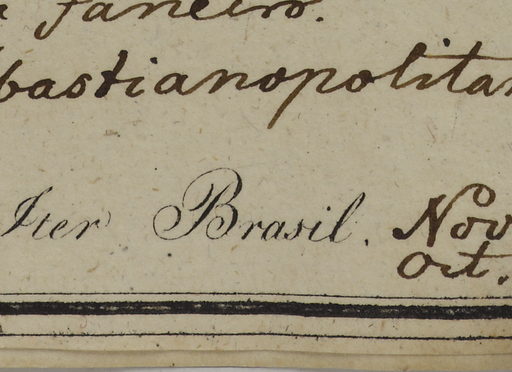 Janeiro.
bastianopolitan
Iter Brasil. Nov
Oct.